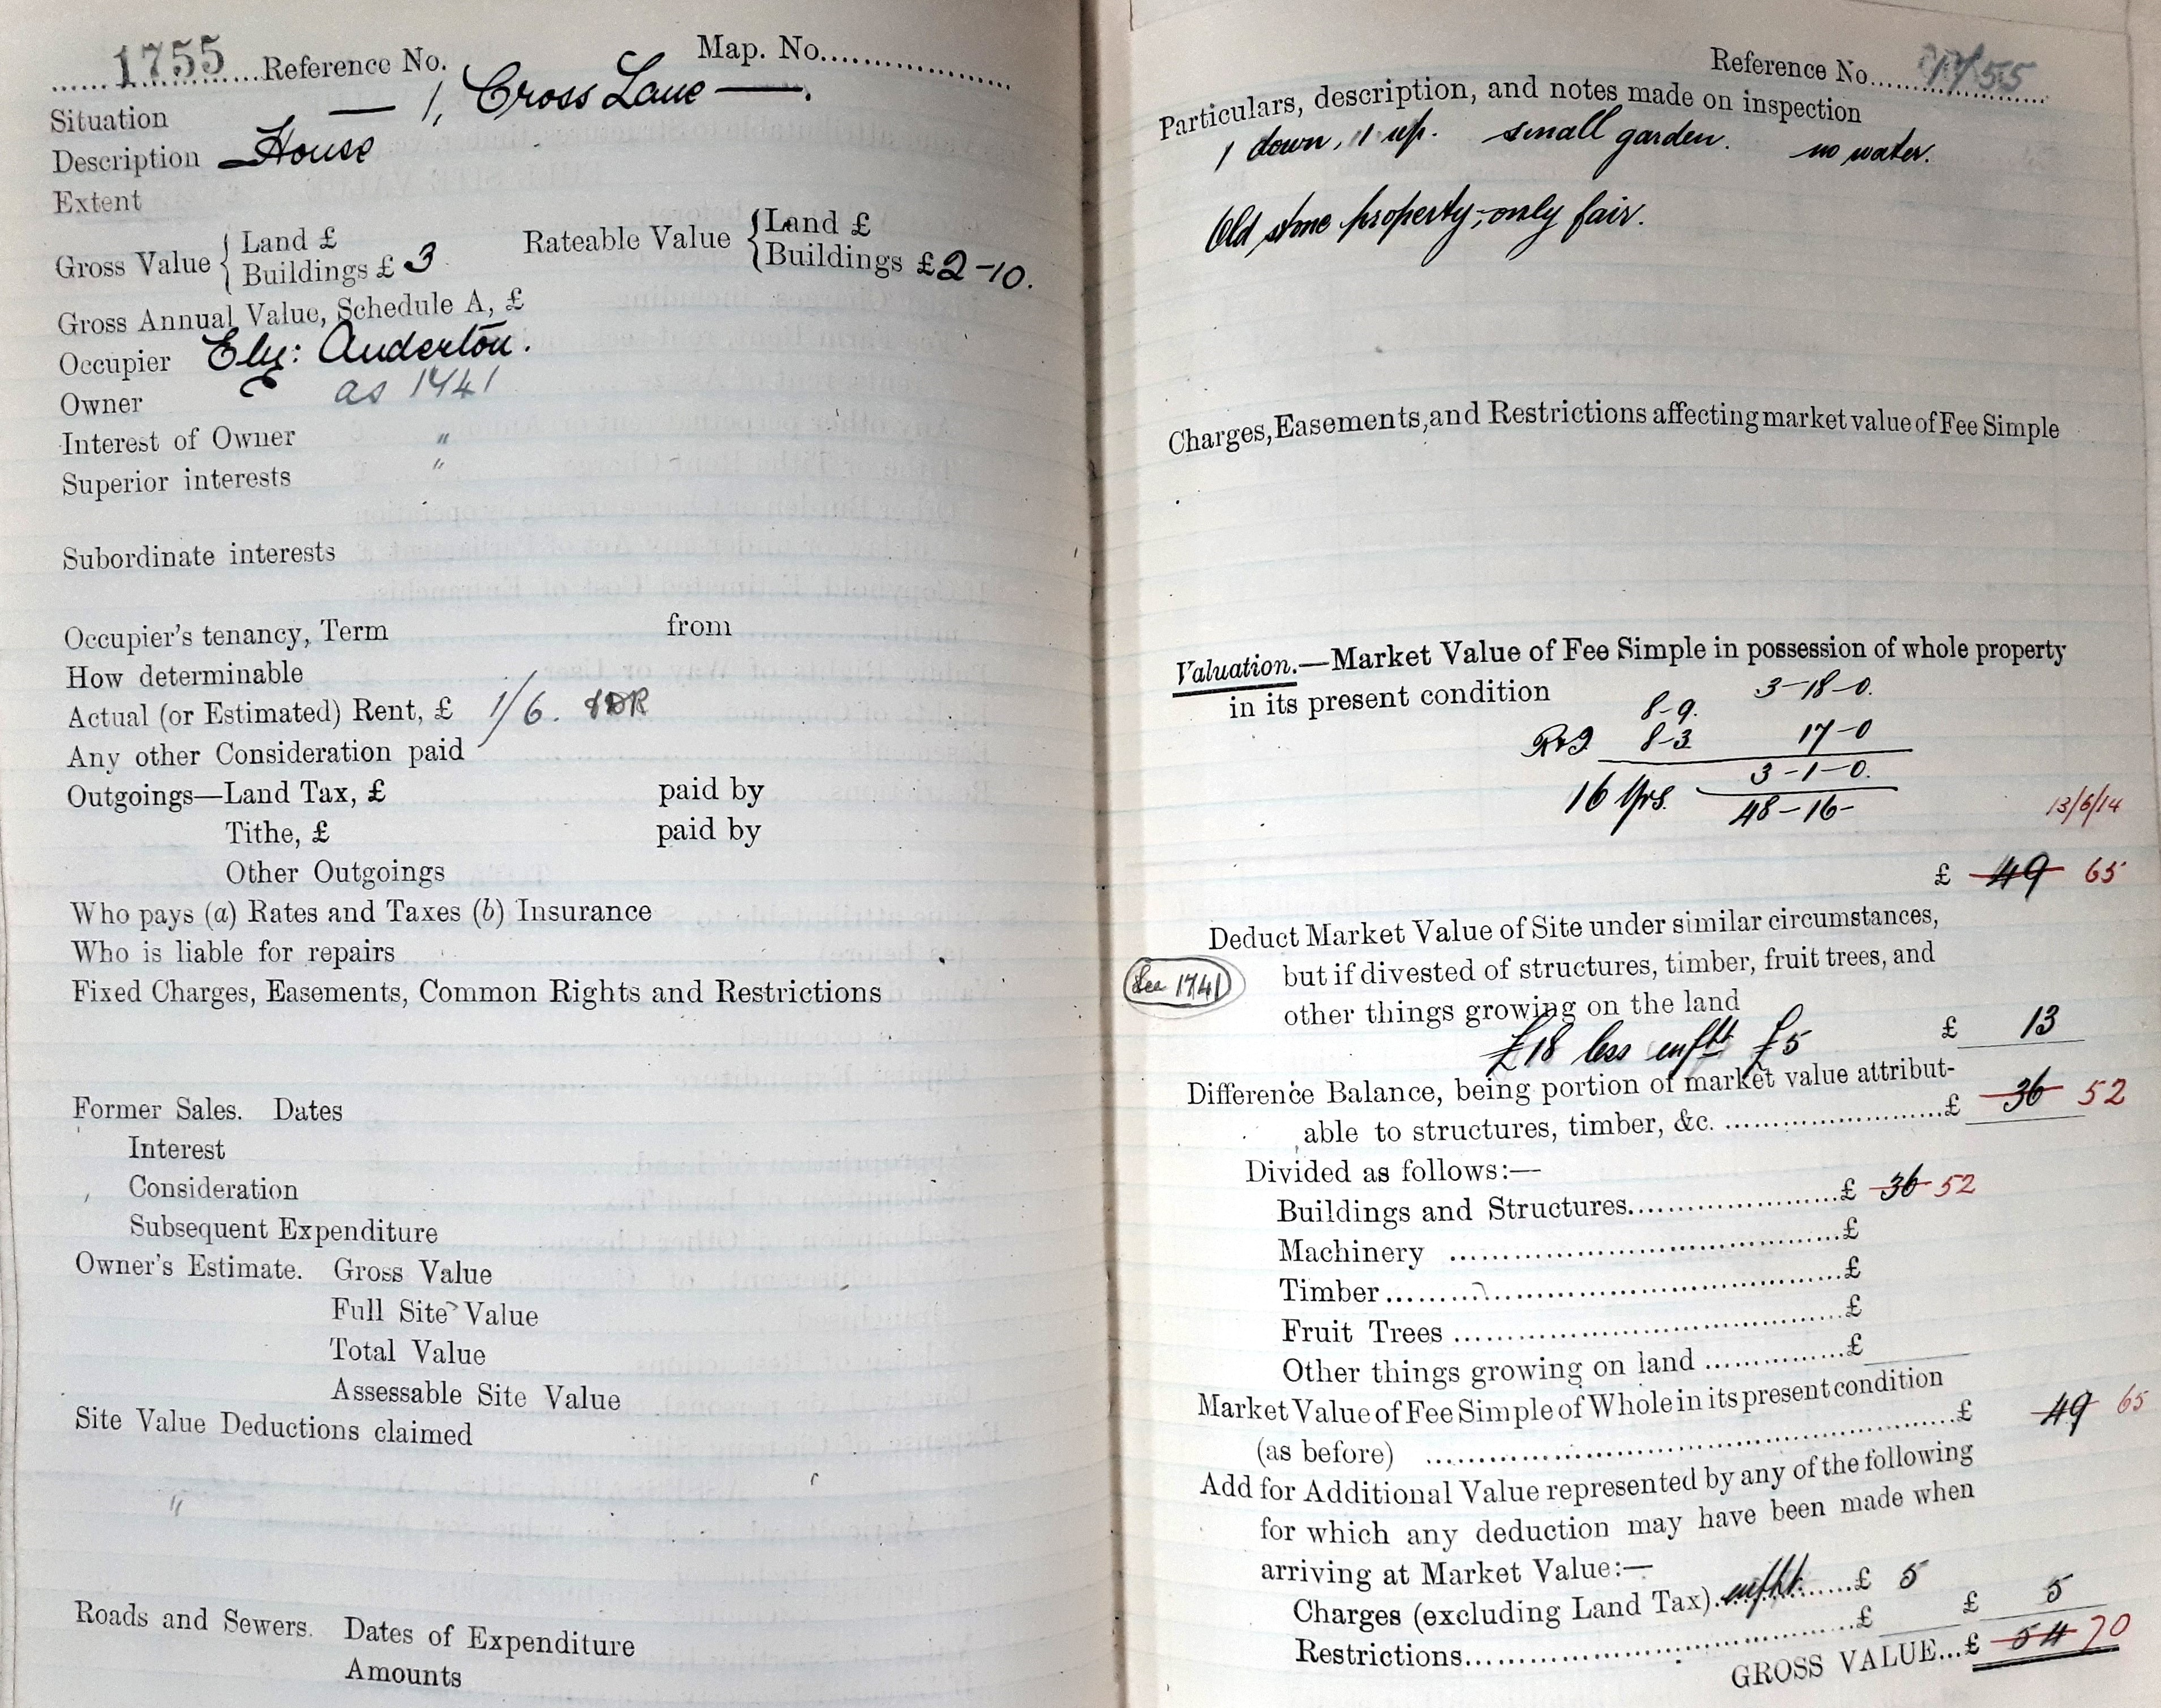 1755 Reference No. Map. No.
Situation — 1, Cross Lane —.
Description House
Extent
Gross Value { Land £
Buildings £ 3
Rateable Value { Land £
Buildings £ 2-10.
Gross Annual Value, Schedule A, £
Occupier Eliz: Anderton.
Owner as 1741
Interest of Owner "
Superior interests "
Subordinate interests
Occupier's tenancy, Term from
How determinable
Actual (or Estimated) Rent, £ 1/6.
Any other Consideration paid
Outgoings—Land Tax, £ paid by
Tithe, £ paid by
Other Outgoings
Who pays (a) Rates and Taxes (b) Insurance
Who is liable for repairs
Fixed Charges, Easements, Common Rights and Restrictions
Former Sales. Dates
Interest
Consideration
Subsequent Expenditure
Owner's Estimate. Gross Value
Full Site Value
Total Value
Assessable Site Value
Site Value Deductions claimed
"
Roads and Sewers. Dates of Expenditure
Amounts
Reference No. 1755
Particulars, description, and notes made on inspection
1 down, 1 up. small garden. no water.
Old stone property; only fair.
Charges, Easements, and Restrictions affecting market value of Fee Simple
Valuation.—Market Value of Fee Simple in possession of whole property
in its present condition
8-9. 3-18-0.
8-3 17-0
3-1-0.
16 Yrs. 48-16-
13/6/14
£ 49 65
Deduct Market Value of Site under similar circumstances,
but if divested of structures, timber, fruit trees, and
See 1741
other things growing on the land
£18 less enfht £5 £ 13
Difference Balance, being portion of market value attribut-
able to structures, timber, &c. £ 36 52
Divided as follows:—
Buildings and Structures £ 36 52
Machinery £
Timber £
Fruit Trees £
Other things growing on land £
Market Value of Fee Simple of Whole in its present condition
(as before) £ 49 65
Add for Additional Value represented by any of the following
for which any deduction may have been made when
arriving at Market Value:—
Charges (excluding Land Tax) enfht. £ 5
Restrictions £ £ 5
GROSS VALUE...£ 54 70